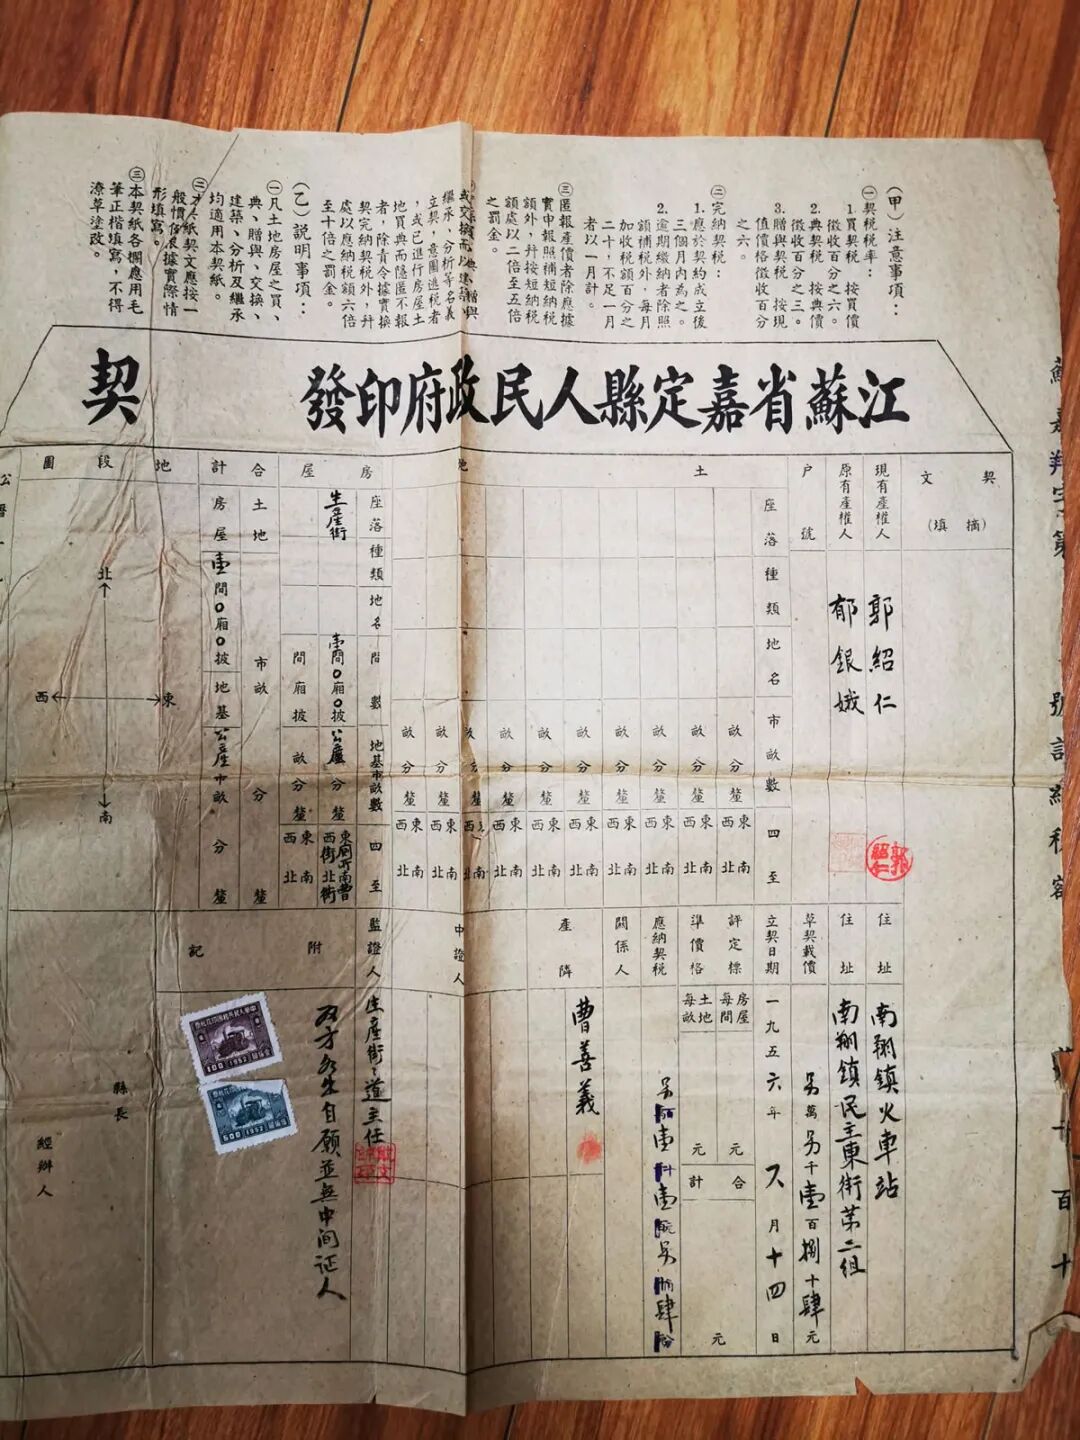 (甲)注意事項：
㊀契稅稅率：
1.買契稅　按買價
徵收百分之六。
2.典契稅　按典價
徵收百分之三。
3.贈與契稅　按現
值價格徵收百分
之六。
㊁完納契稅：
1.應於契約成立後
三個月內為之。
2.逾期繳納者除照
額補稅外，每月
加收稅額百分之
二十，不足一月
者以一月計。
㊂匿報產價者除應據
實申報照補短納稅
額外，幷按短納稅
額處以二倍至五倍
之罰金。
繼承、分析等名義
立契，意圖逃稅者
，或已進行房屋土
地買典而隱匿不報
者，除責令據實換
契完納契稅外，幷
處以應納稅額六倍
至十倍之罰金。
(乙)說明事項：
㊀凡土地房屋之買、
典、贈與、交換、
建築、分析及繼承
均適用本契紙。
㊁本契紙契文應按一
般慣例及根據實際情
形填寫。
㊂本契紙各欄應用毛
筆正楷填寫，不得
潦草塗改。
江蘇省嘉定縣人民政府印發
契
契文
(摘填)
現有產權人
郭紹仁
住址
南翔鎮火車站
原有產權人
郁銀娥
住址
南翔鎮民主東街第二組
戶號
草契載價
另萬另千壹百捌十肆元
土地
座落
種類
地名
市畝數
四至
立契日期
一九五六年
月十四日
畝分釐
東南西北
畝分釐
東南西北
畝分釐
東南西北
畝分釐
東南西北
畝分釐
東南西北
畝分釐
東南西北
畝分釐
東南西北
畝分釐
東南西北
畝分釐
東南西北
畝分釐
東南西北
評定標準價格
房屋每間
元
土地每畝
元
合計
元
應納契稅
壹
壹
另
肆
關係人
產隣
曹善義
中證人
監證人
生產街
道主任
房屋
座落
種類
地名
間數
地基市畝數
四至
生產街
壹間0廂0披
公產
分釐
間廂披
畝分釐
東南西北
合計
土地
市畝
分
釐
房屋
壹間0廂0披
地基
公產市畝
分
釐
地段圖
北
東
南
西
附記
自願並無中间证人
100
1952
500
1952
縣長
經辦人
郭紹仁